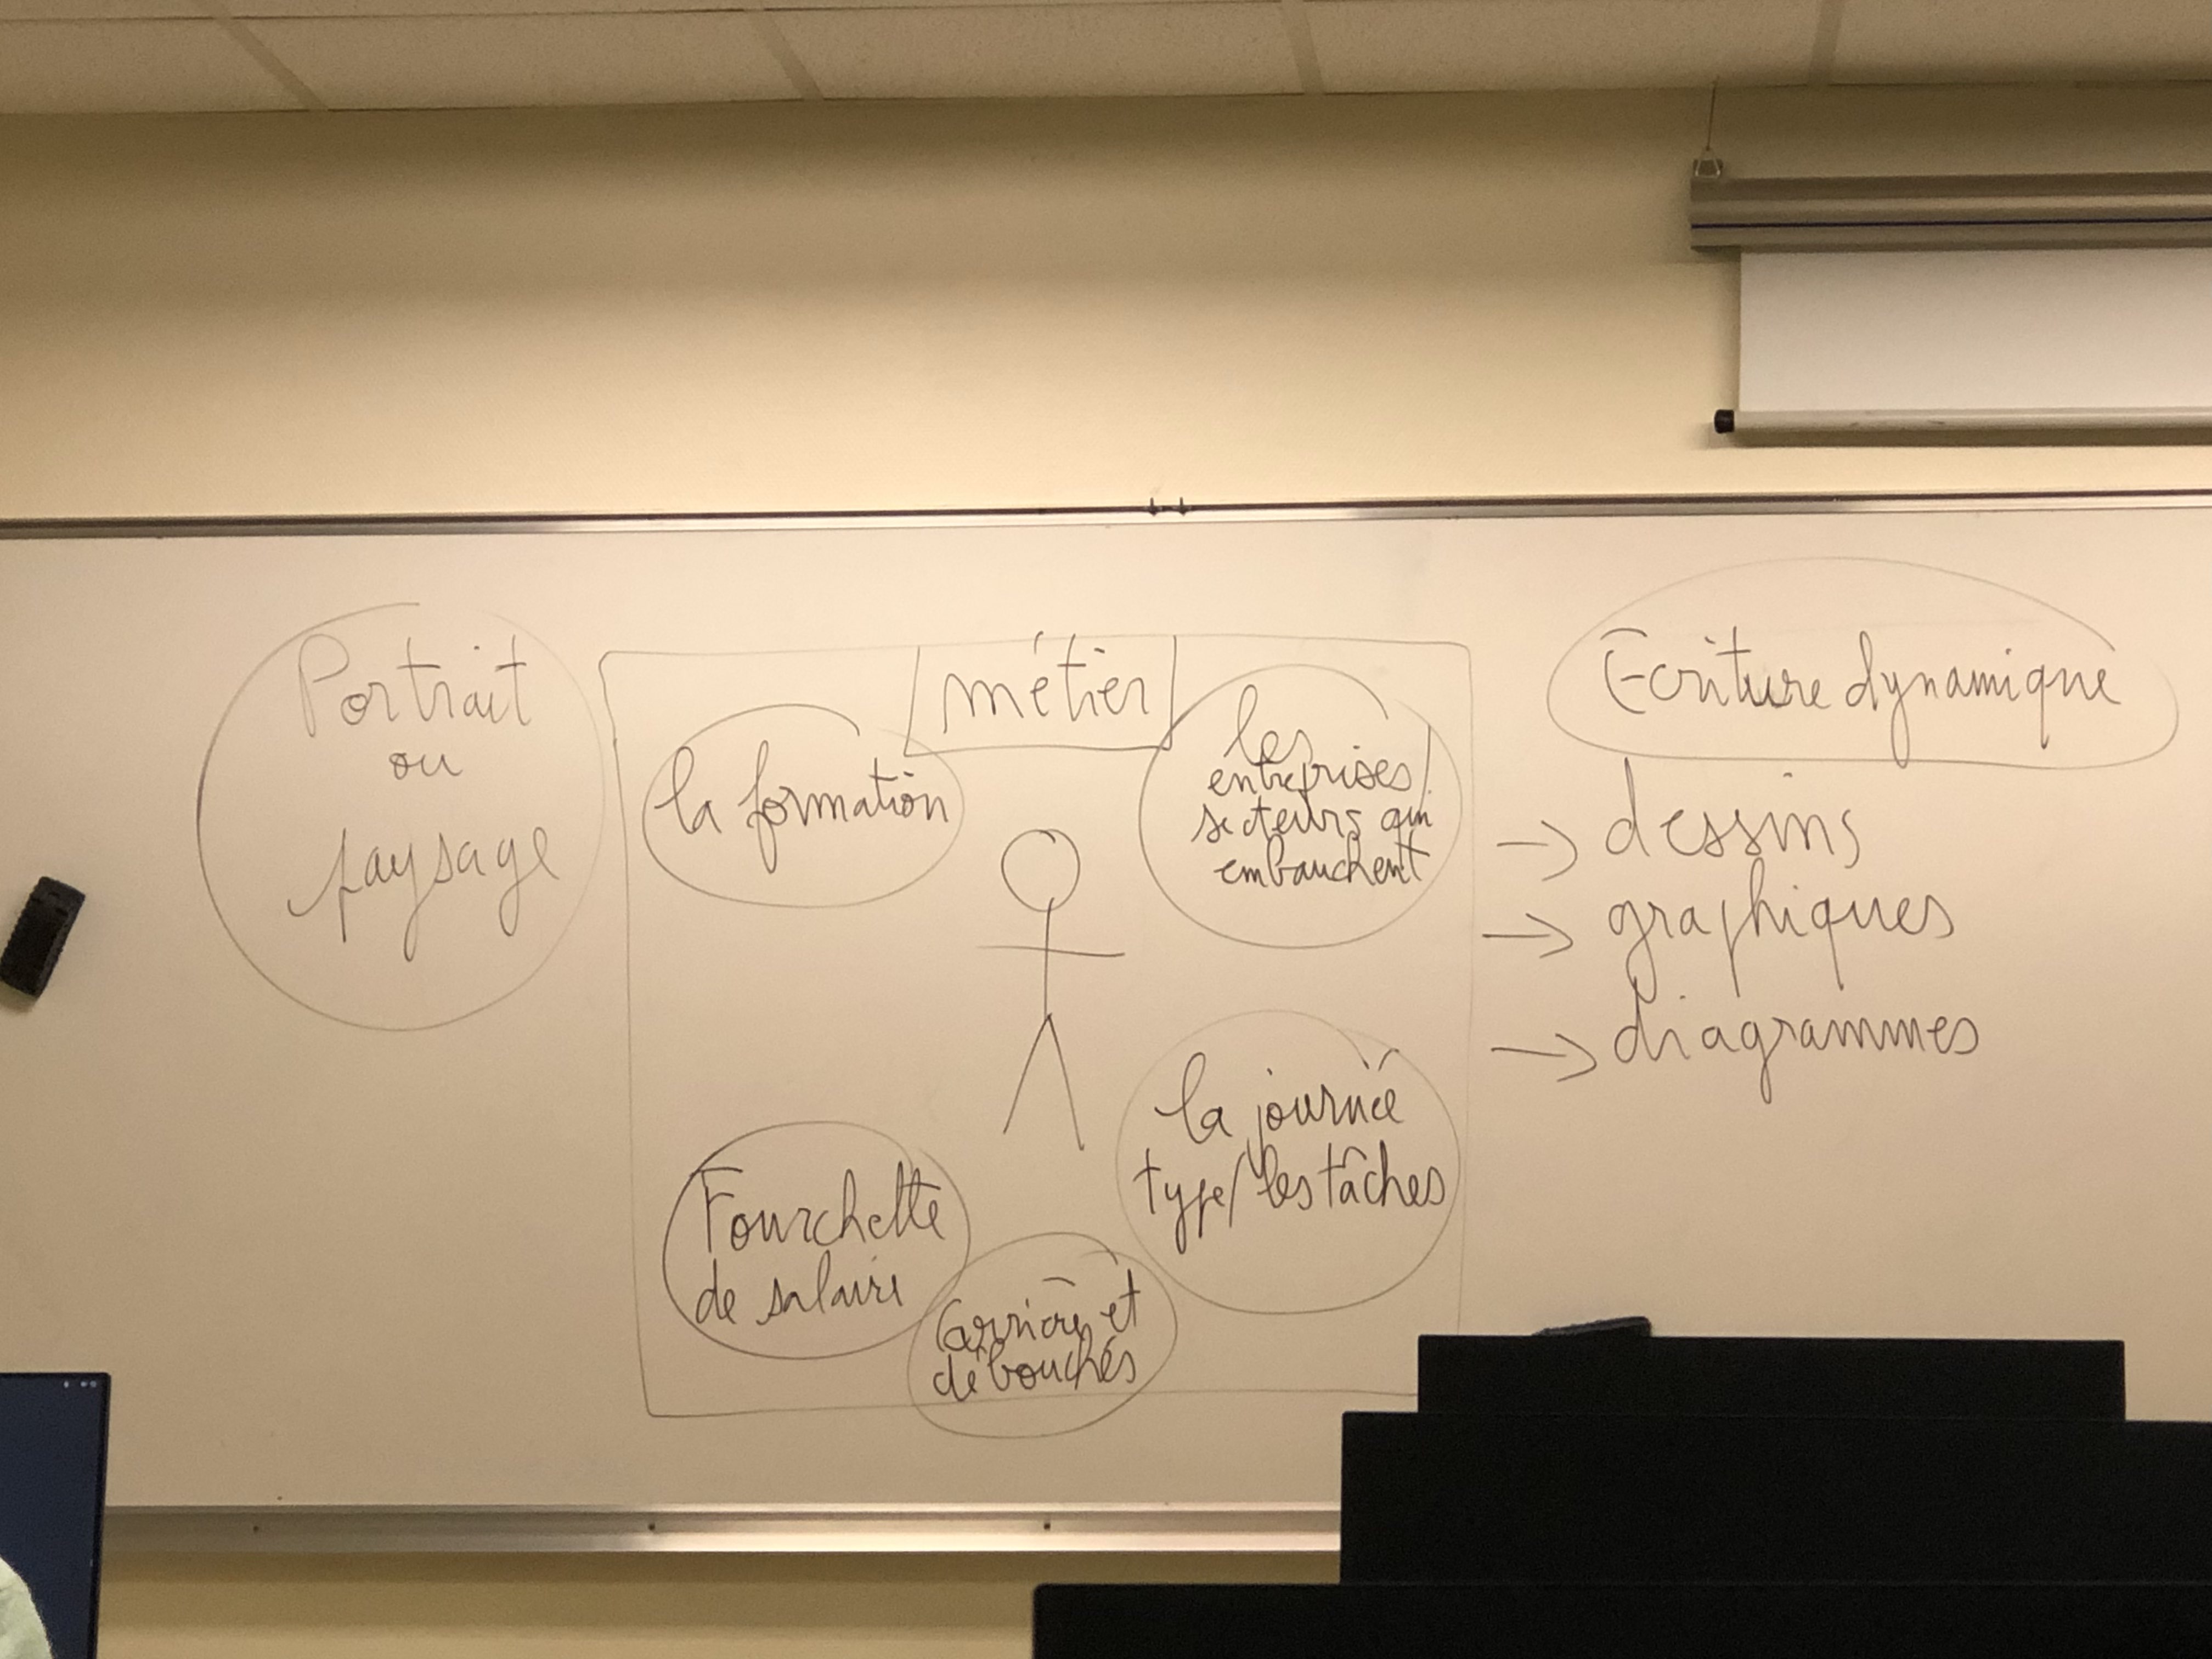 Portrait
ou
paysage
métier
la formation
les
entreprises/
secteurs qui
embauchent
la journée
type/les tâches
Fourchette
de salaire
Carrière et
débouchés
Ecriture dynamique
→ dessins
→ graphiques
→ diagrammes